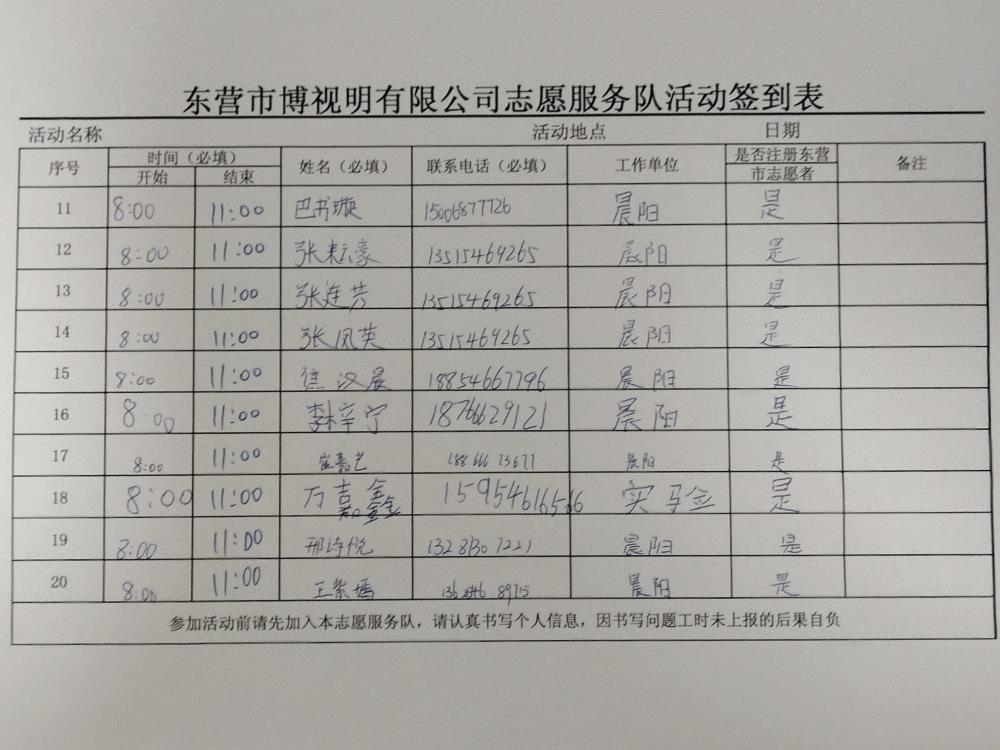 东营市博视明有限公司志愿服务队活动签到表
活动名称 活动地点 日期
序号 时间（必填） 姓名（必填） 联系电话（必填） 工作单位 是否注册东营市志愿者 备注
开始 结束
11 8:00 11:00 巴书璇 15006877726 晨阳 是
12 8:00 11:00 张耘豪 13515469265 晨阳 是
13 8:00 11:00 张连芳 13515469265 晨阳 是
14 8:00 11:00 张凤英 13515469265 晨阳 是
15 8:00 11:00 焦汉晨 18854667796 晨阳 是
16 8:00 11:00 李梓宁 18766629121 晨阳 是
17 8:00 11:00 晨阳 是
18 8:00 11:00 万嘉鑫 15954616566 实马金 是
19 8:00 11:00 邢诗悦 13281307221 晨阳 是
20 8:00 11:00 晨阳 是
参加活动前请先加入本志愿服务队，请认真书写个人信息，因书写问题工时未上报的后果自负